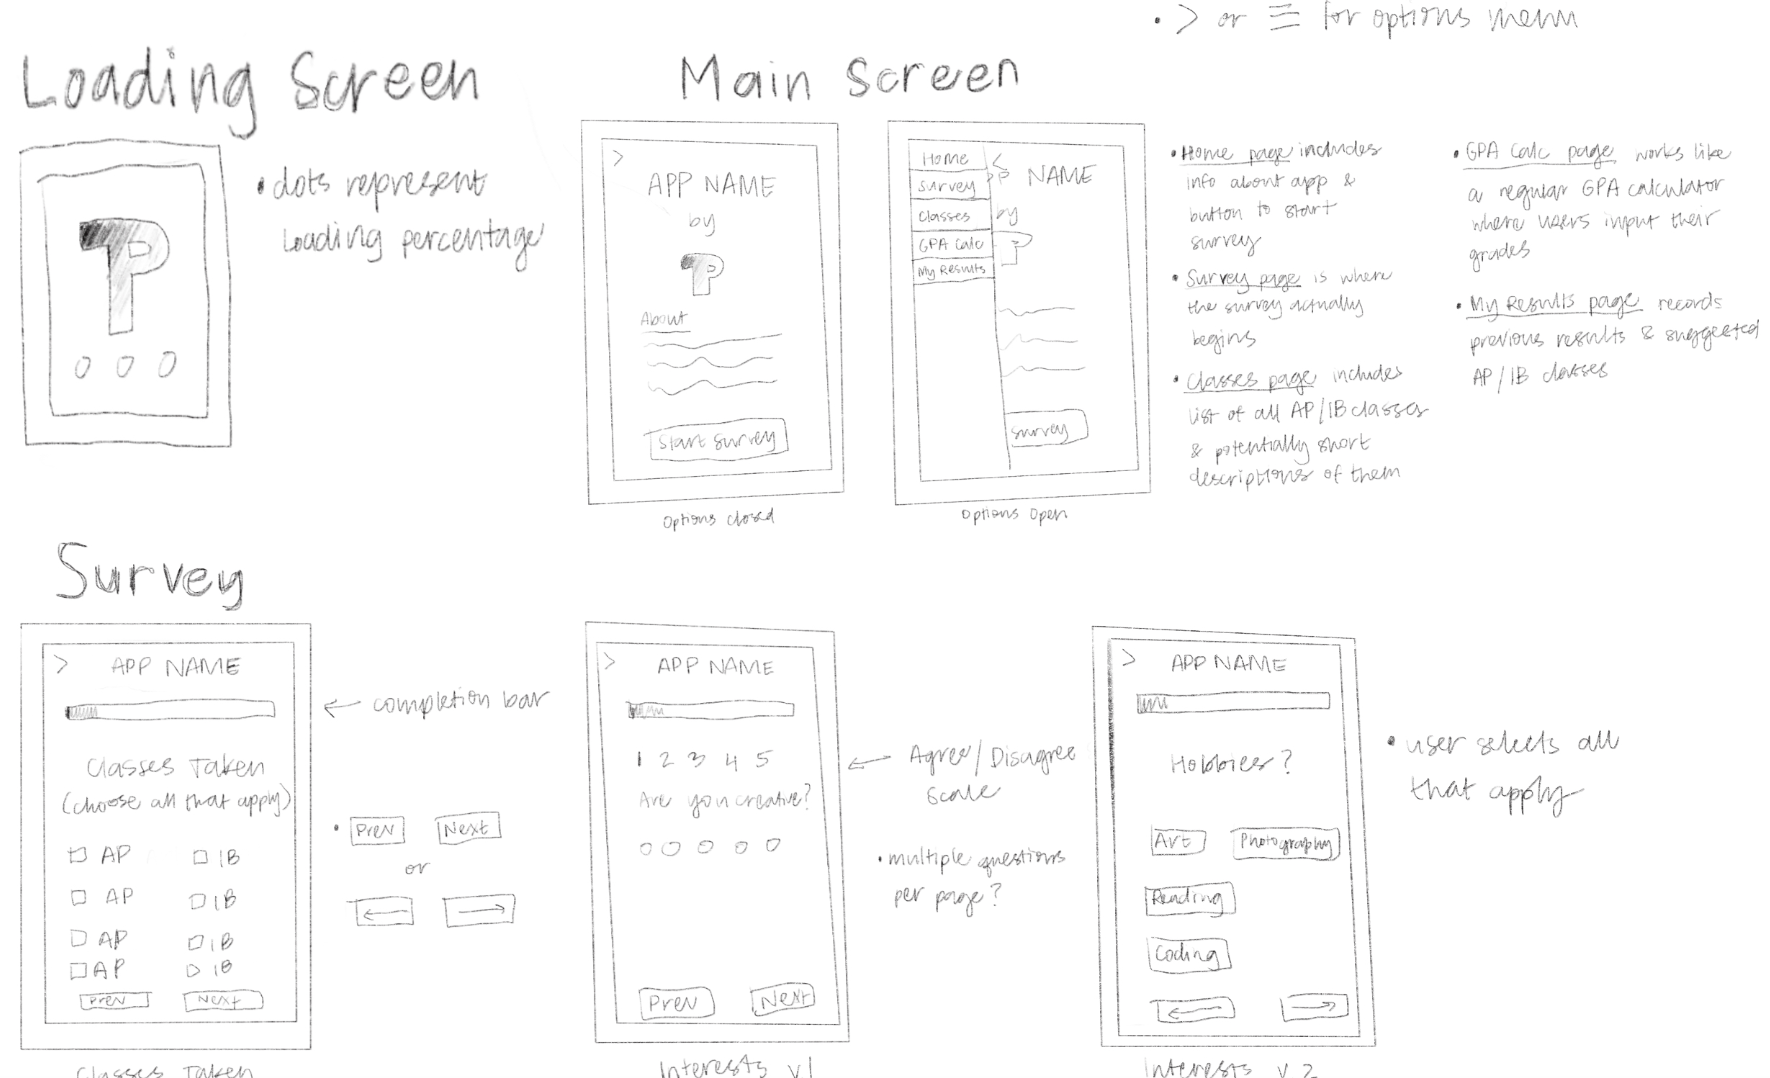 • > or ☰ for options menu
Loading Screen
• dots represent
loading percentage
Main Screen
>
APP NAME
by
TP
About
Start Survey
Options Closed
Home
Survey
Classes
GPA Calc
My Results
<
P NAME
by
P
Survey
Options Open
• Home page includes
info about app &
button to start
survey
• Survey page is where
the survey actually
begins
• Classes page includes
list of all AP/IB classes
& potentially short
descriptions of them
• GPA Calc page works like
a regular GPA calculator
where users input their
grades
• My Results page records
previous results & suggested
AP/IB classes
Survey
> APP NAME
← completion bar
Classes Taken
(choose all that apply)
□ AP □ IB
□ AP □ IB
□ AP □ IB
□ AP □ IB
Prev Next
Classes Taken
• Prev Next
or
← →
> APP NAME
1 2 3 4 5
Are you creative?
○ ○ ○ ○ ○
Prev Next
Interests v1
← Agree/Disagree
Scale
• multiple questions
per page?
> APP NAME
Hobbies?
Art Photography
Reading
Coding
← →
Interests v.2
• user selects all
that apply